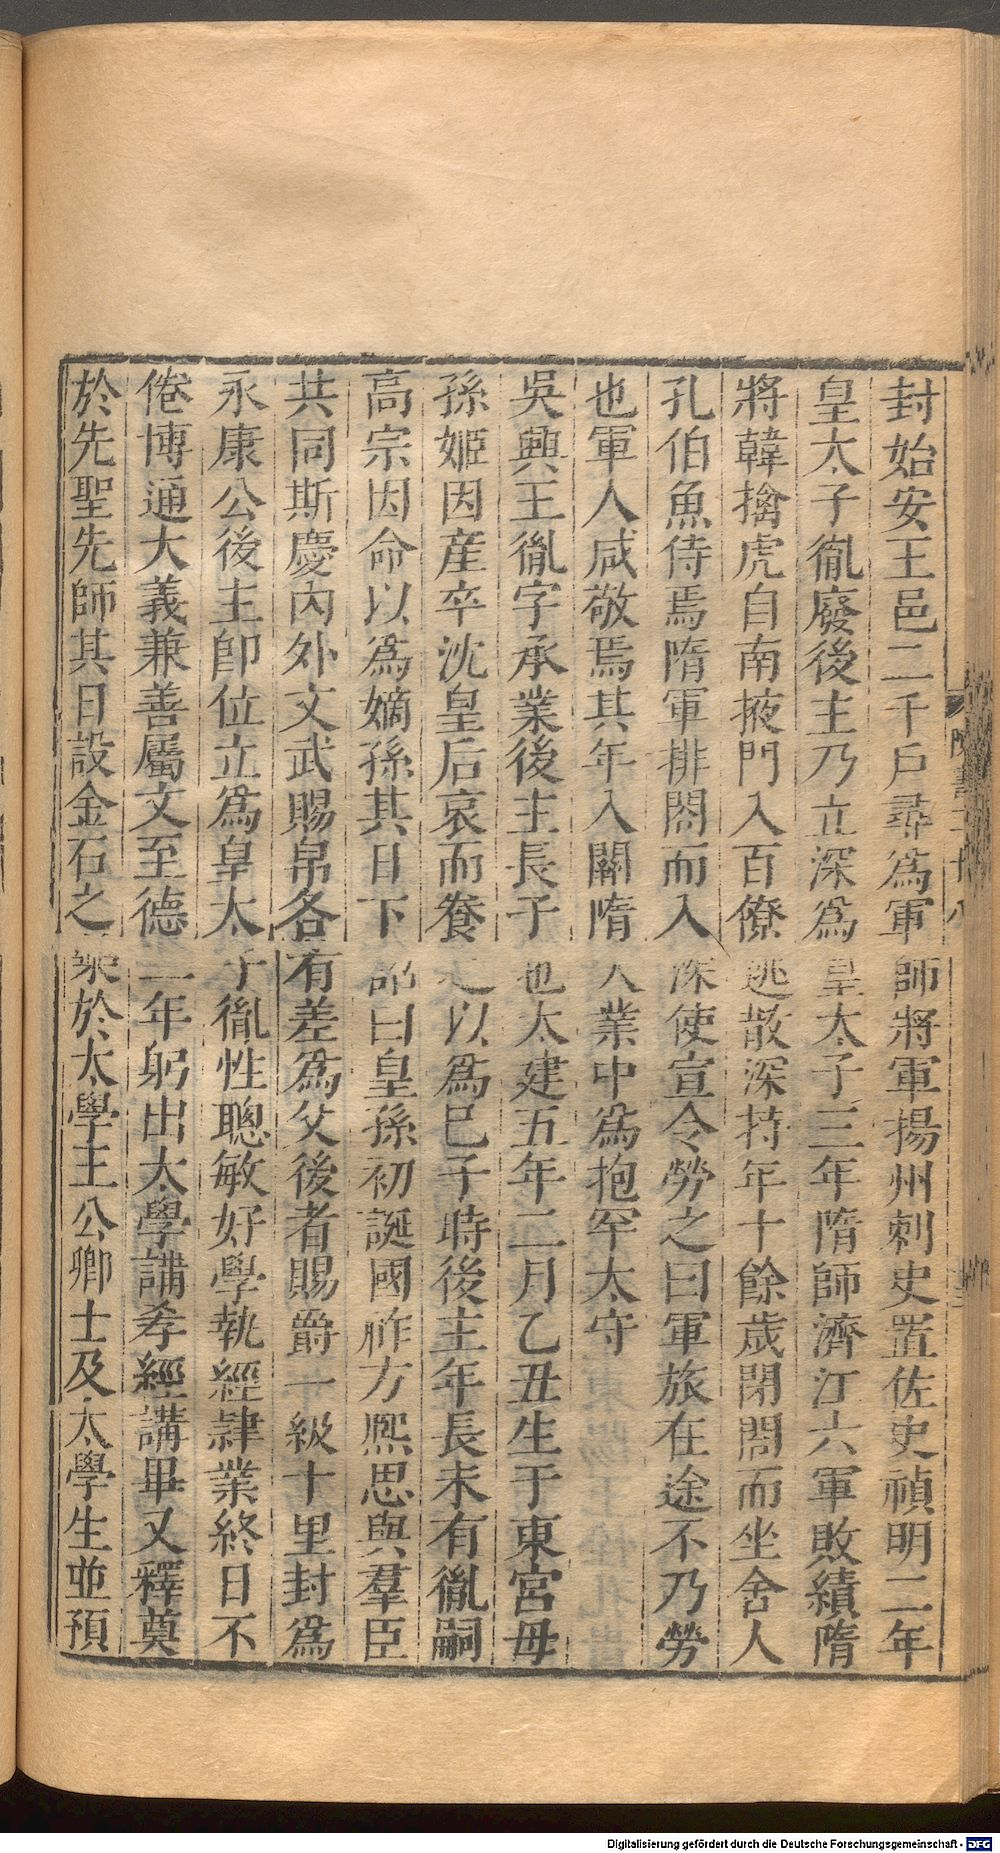 封始安王邑二千戶尋爲軍師將軍揚州刺史置佐史禎明二年
皇太子胤廢後主乃立深爲皇太子三年隋師濟江六軍敗績隋
將韓擒虎自南掖門入百僚逃散深持年十餘歲閉閤而坐舍人
孔伯魚侍焉隋軍排閤而入深使宣令勞之曰軍旅在途不乃勞
也軍人咸敬焉其年入關隋大業中爲抱罕太守
吳興王胤字承業後主長子也太建五年二月乙丑生于東宮母
孫姬因産卒沈皇后哀而養之以爲已子時後主年長未有胤嗣
高宗因命以爲嫡孫其日下詔曰皇孫初誕國祚方熙思與羣臣
共同斯慶内外文武賜帛各有差爲父後者賜爵一級十里封爲
永康公後主卽位立爲皇太子胤性聰敏好學執經肄業終日不
倦博通大義兼善屬文至德二年躬出太學講孝經講畢又釋奠
於先聖先師其日設金石之樂於太學王公卿士及太學生並預
陳書二十八
Digitalisierung gefördert durch die Deutsche Forschungsgemeinschaft - DFG